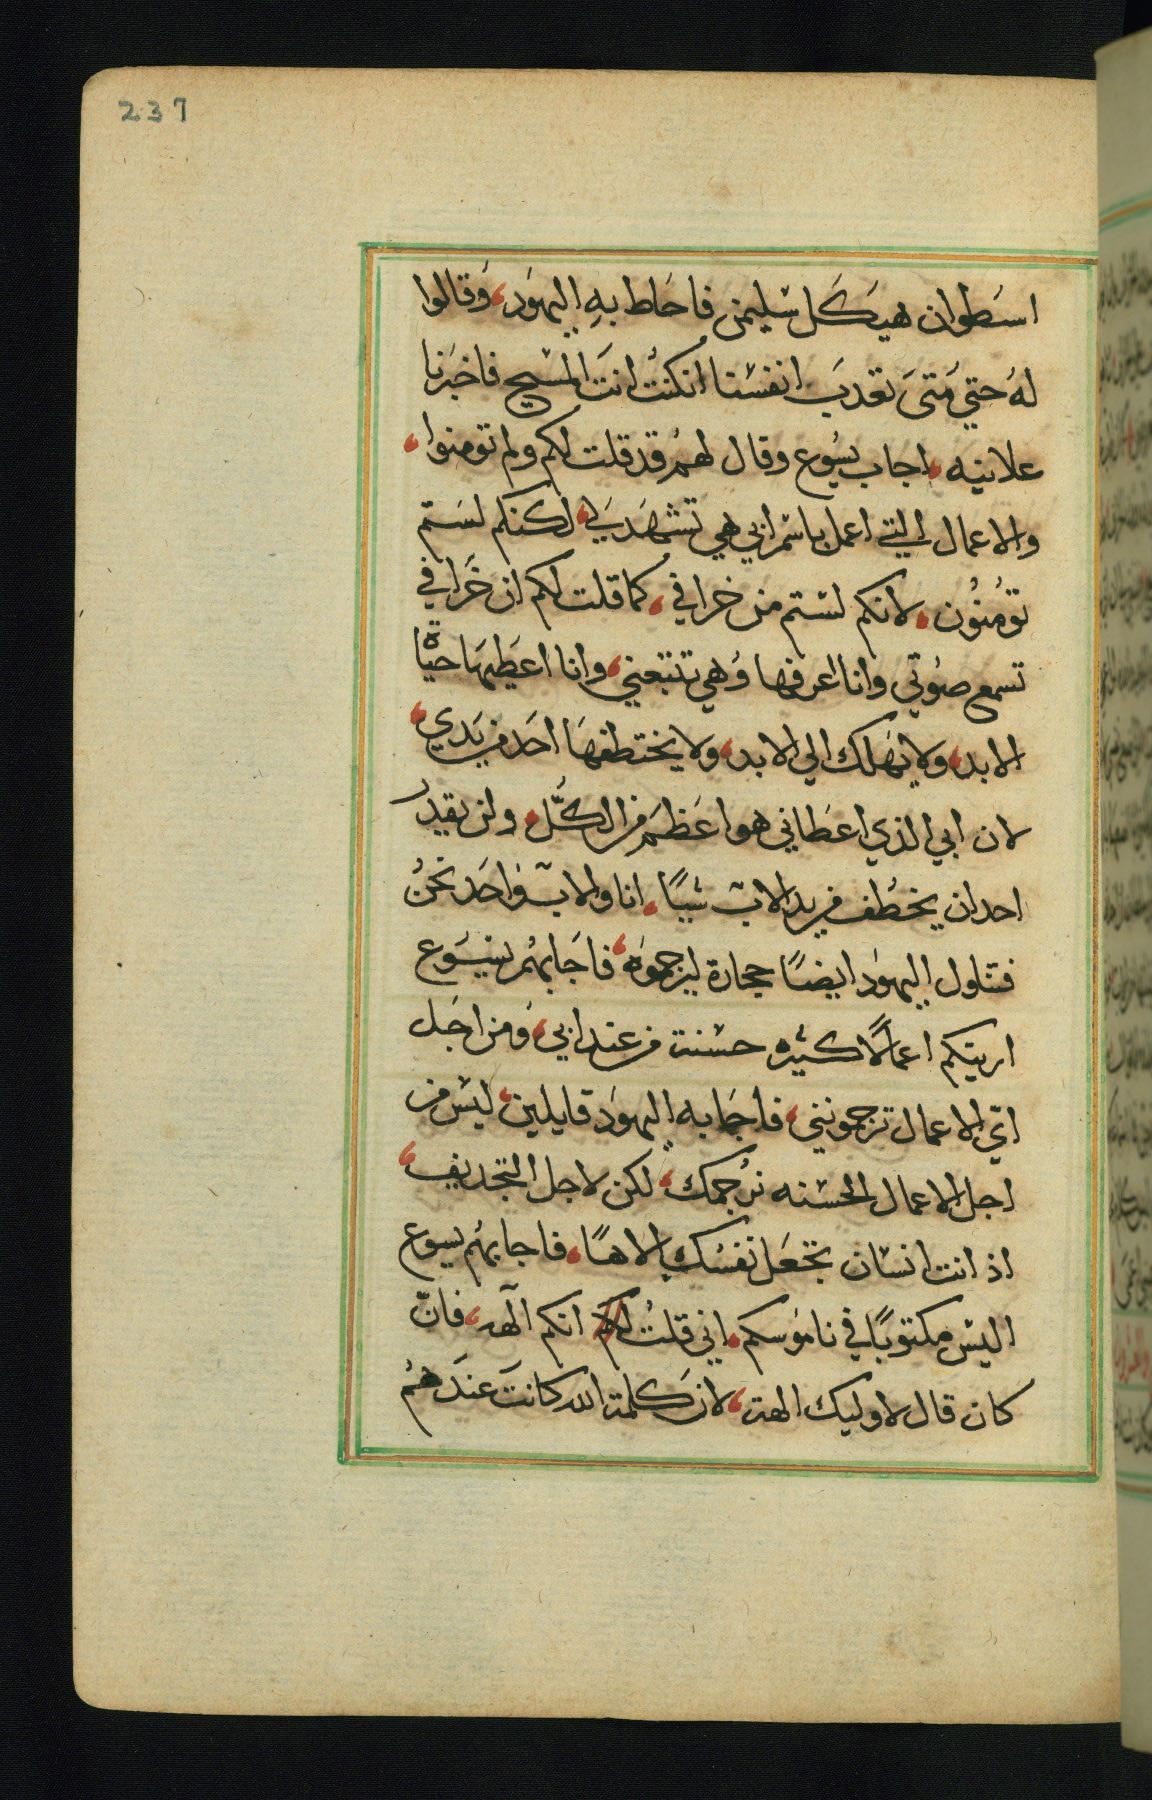 237
اسطوان هيكل سليمن فاحاط به اليهود، وقالوا
له حتي متى تعدب انفسنا انكنت انت المسيح فاخبرنا
علانيه، اجاب يسوع وقال لهم قد قلت لكم ولم تومنوا،
والاعمال التي اعمل باسم ابي هي تشهد لي، لكنكم لستم
تومنون، لانكم لستم من خرافي، كما قلت لكم ان خرافي
تسمع صوتي وانا اعرفها وهي تتبعني، وانا اعطيها حياة
الابد، ولا تهلك الي الابد، ولا يختطفها احد من يدي،
لان ابي الذي اعطاني هو اعظم من الكل، ولن يقدر
احد ان يخطف من يد الاب شيًا، انا والاب واحد نحن
فتناول اليهود ايضًا حجارة ليرجموه، فاجابهم يسوع
اريتكم اعمالًا كثيره حسنت من عند ابي، ومن اجل
ايّ الاعمال ترجمونني، فاجابه اليهود قايلين، ليس من
اجل الاعمال الحسنه نرجمك، لكن لاجل التجديف،
اذ انت انسان تجعل نفسك الاهًا، فاجابهم يسوع
اليس مكتوبًا في ناموسكم، اني قلت لكم انكم آلهه، فانّ
كان قال لاوليك الهت، لان كلمت الله كانت عندهم